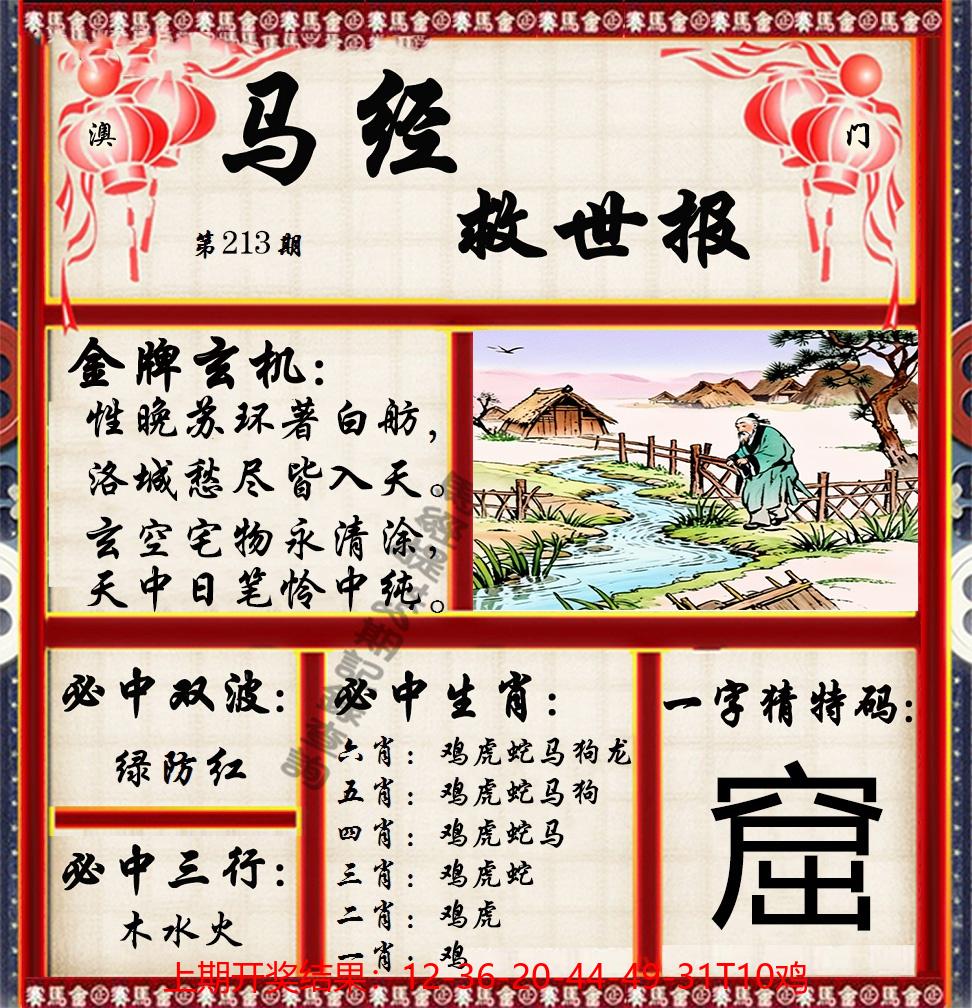 澳
门
马经
救世报
第213期
金牌玄机：
性晚苏环著白舫，
洛城愁尽皆入天。
玄空宅物永清涂，
天中日笔怜中纯。
必中双波：
绿防红
必中三行：
木水火
必中生肖：
六肖：鸡虎蛇马狗龙
五肖：鸡虎蛇马狗
四肖：鸡虎蛇马
三肖：鸡虎蛇
二肖：鸡虎
一肖：鸡
一字猜特码：
窟
上期开奖结果：12-36-20-44-49-31T10鸡